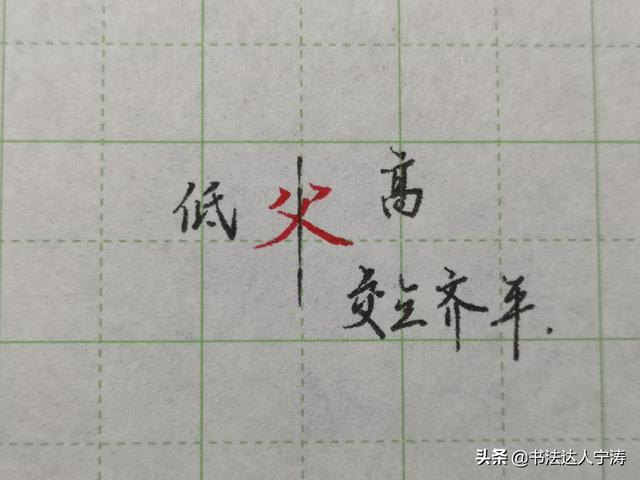 低 父 高
交点齐平.
头条 @书法达人宁涛